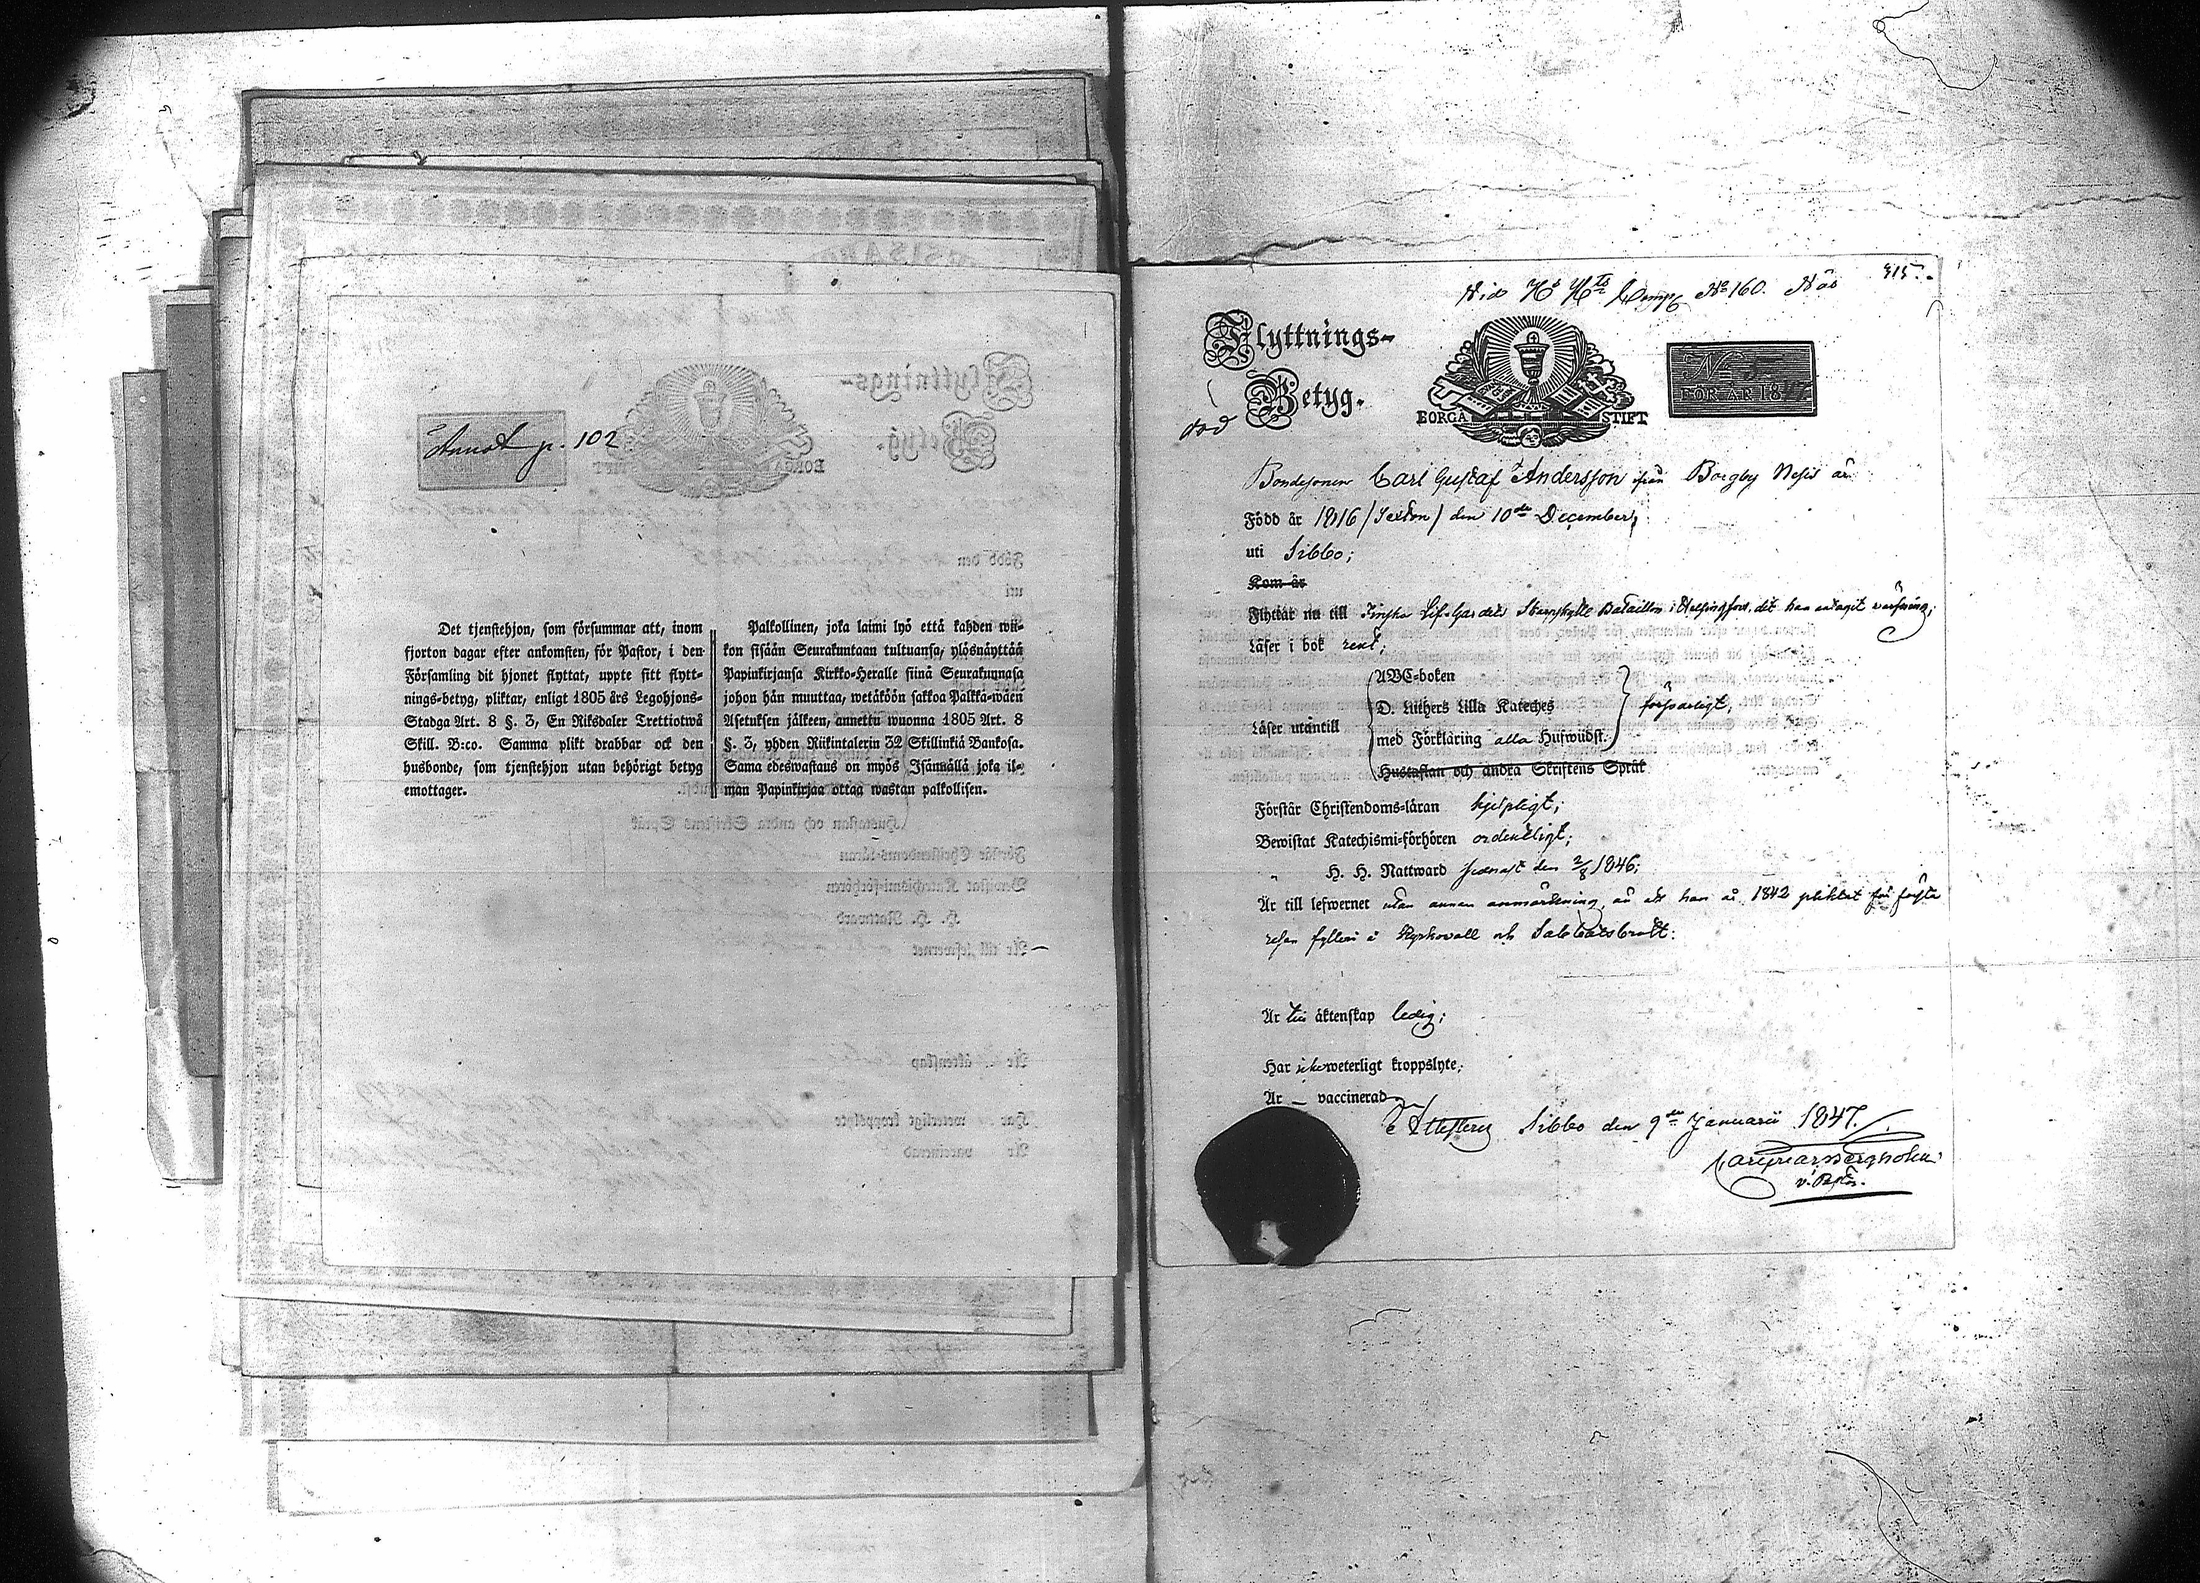 Annot p. 102
Det tjenstehjon, som försummar att, inom
fjorton dagar efter ankomsten, för Pastor, i den
Församling dit hjonet flyttat, uppte sitt flytt-
nings-betyg, pliktar, enligt 1805 års Legohjons-
Stadga Art. 8 §. 3, En Riksdaler Trettiotwå
Skill. B:co. Samma plikt drabbar ock den
husbonde, som tjenstehjon utan behörigt betyg
emottager.
Palkollinen, joka laimi lyö että kahden wii-
kon sisään Seurakuntaan tultuansa, ylösnäyttää
Papinkirjansa Kirkko-Heralle siinä Seurakunnasa
johon hän muuttaa, wetäköön sakkoa Palkka-wäen
Asetuksen jälkeen, annettu wuonna 1805 Art. 8
§. 3, yhden Riikintalerin 32 Skillinkiä Bankosa.
Sama edeswastaus on myös Isännällä joka il-
man Papinkirjaa ottaa wastan palkollisen.
315.
Vid Comp N:o 160. Näs
Flyttnings-
Betyg.
död
BORGÅ STIFT
N:o
FÖR ÅR 1847
Bondesonen Carl Gustaf Andersson från Borgby
Född år 1816 /Sexton/ den 10de December;
uti Sibbo;
Kom år
Flyttar nu till Finska Lif-Gardets Skarpskytte Bataillon i Helsingfors, dit han antagit värfning;
Läser i bok rent;
Läser utantill
ABC-boken
D. Luthers Lilla Kateches
med Förklaring alla Hufwudst.
Hustaflan och andra Skriftens Språk
försvarligt;
Förstår Christendoms-läran hjelpligt;
Bewistat Katechismi-förhören ordentligt;
" H. H. Nattward senast den 2/8 1846;
Är till lefwernet utan annan anmärkning, än att han år 1842 pliktat för första
resan fylleri å Kyrkovall och Sabbatsbrott:
Är till äktenskap ledig;
Har icke weterligt kroppslyte;
Är — vaccinerad
Attesterar Sibbo den 9de Januarii 1847.
Bergholm
v. Pastor.